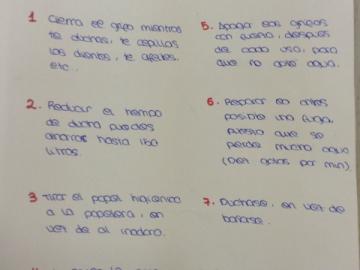 1 Cierra el grifo mientras
te duchas, te cepillas
los dientes, te afeites,
etc...
2. Reducir el tiempo
de ducha puedes
ahorrar hasta 150
litros.
3 Tirar el papel higiénico
a la papelera, en
vez de al inodoro.
5. Apaga los grifos
con fuerza, después
de cada uso, para
que no gotee agua.
6. Reparar lo antes
posible una fuga,
puesto que se
pierde mucha agua
(Diez gotas por min)
7. Ducharse, en vez de
bañarse.